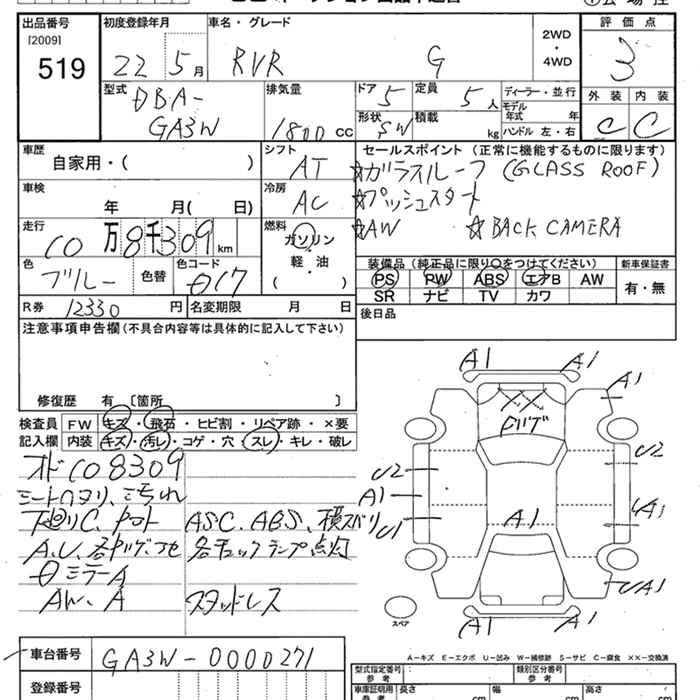 出品番号
[2009]
519
初度登録年月
22 5月
車名・グレード
RVR G
2WD
・
4WD
評価点
3
外装 内装
C C
型式
DBA-
GA3W
排気量
1800 CC
ドア
5
形状
SW
定員
5人
積載
kg
ディーラー・並行
モデル
年式 年
ハンドル 左・右
車歴
自家用・( )
シフト
AT
セールスポイント (正常に機能するものに限ります)
☆ガラスルーフ (GLASS ROOF)
☆プッシュスタート
☆AW ☆BACK CAMERA
車検
年 月( 日)
冷房
AC
走行
10万8千309km
燃料
ガソリン
・
軽・油
・
色
ブルー
色替
色コード
D17
装備品 (純正品に限り○をつけてください)
PS PW ABS エアB AW
SR ナビ TV カワ
新車保証書
有・無
R券 12330円
名変期限 月 日
後日品
注意事項申告欄 (不具合内容等は具体的に記入して下さい)
修復歴 有 [箇所 ]
検査員
記入欄
FW キズ・飛石・ヒビ割・リペア跡・×要
内装 キズ・汚レ・コゲ・穴・スレ・キレ・破レ
オド108309
シートヘタリ、汚れ
下廻りC、
A.U、各
ミラーA
AW、A
ASC、ABS、横スベリ
各チェックランプ点灯
スタッドレス
A1 A1
A1
U2 U2
A1
U1
A1
A1 A1
スペア
A-キズ E-エクボ U-凹み W-補修跡 S-サビ C-腐食 ××-交換済
車台番号
GA3W-0000271
登録番号
型式指定番号
参考
類別区分番号
参考
車庫証明用
参考
長さ cm
幅 cm
高さ cm